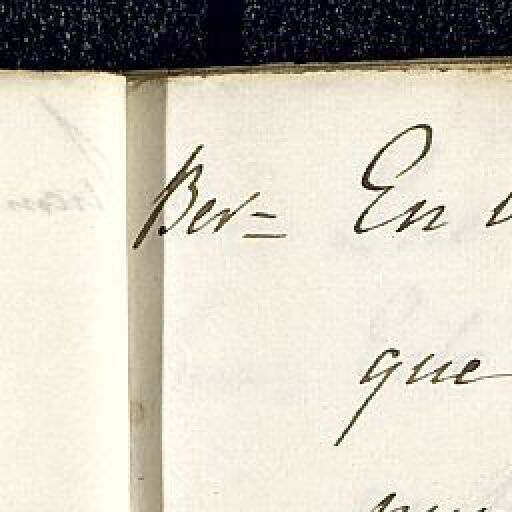 Ber= En
que